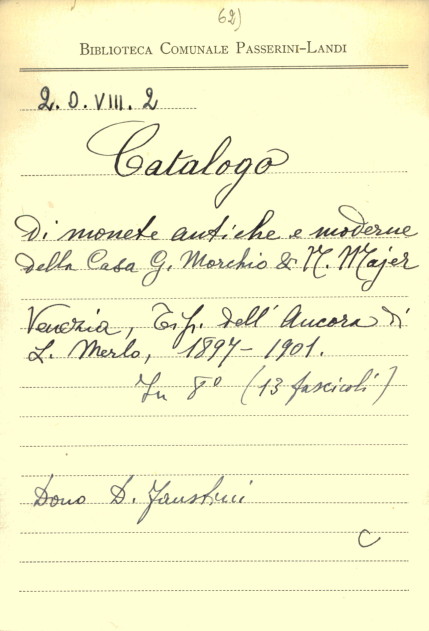 62)
BIBLIOTECA COMUNALE PASSERINI-LANDI
2. O. VIII. 2
Catalogo
di monete antiche e moderne
della Casa G. Morchio & N. Majer
Venezia, Tip. dell' Ancora di
L. Merlo, 1897-1901.
In 8° (13 fascicoli)
Dono D. Faustini
C